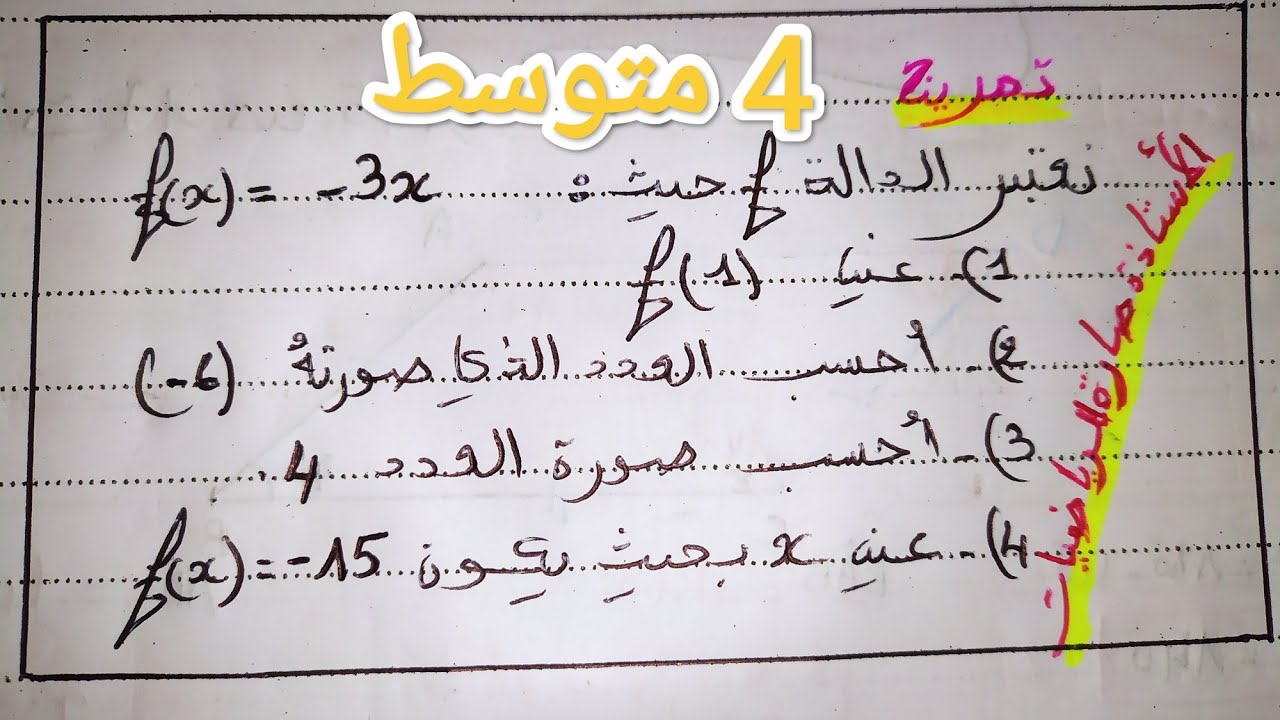 4 متوسط
تمرين
نعتبر الدالة f حيث: f(x) = -3x
1)- عين f(1)
2)- أحسب العدد الذي صورتهُ (-6)
3)- أحسب صورة العدد 4.
4)- عين x بحيث يكون f(x) = -15
الأستاذة صارة للرياضيات